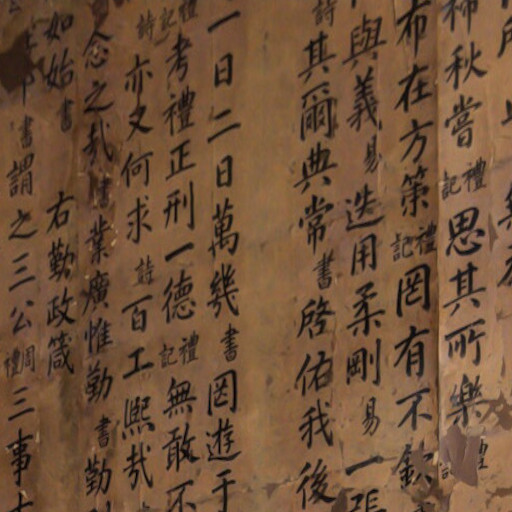 秋嘗禮記思其所樂
布在方策禮記罔有不欽
與義易迭用柔剛易一張
詩其爾典常書啓佑我後
一日二日萬幾書罔遊于
禮記考禮正刑一德禮記無敢不
詩亦又何求詩百工熙哉
念之哉書業廣惟勤書勤
如始書 右勤政箴
書謂之三公周禮三事